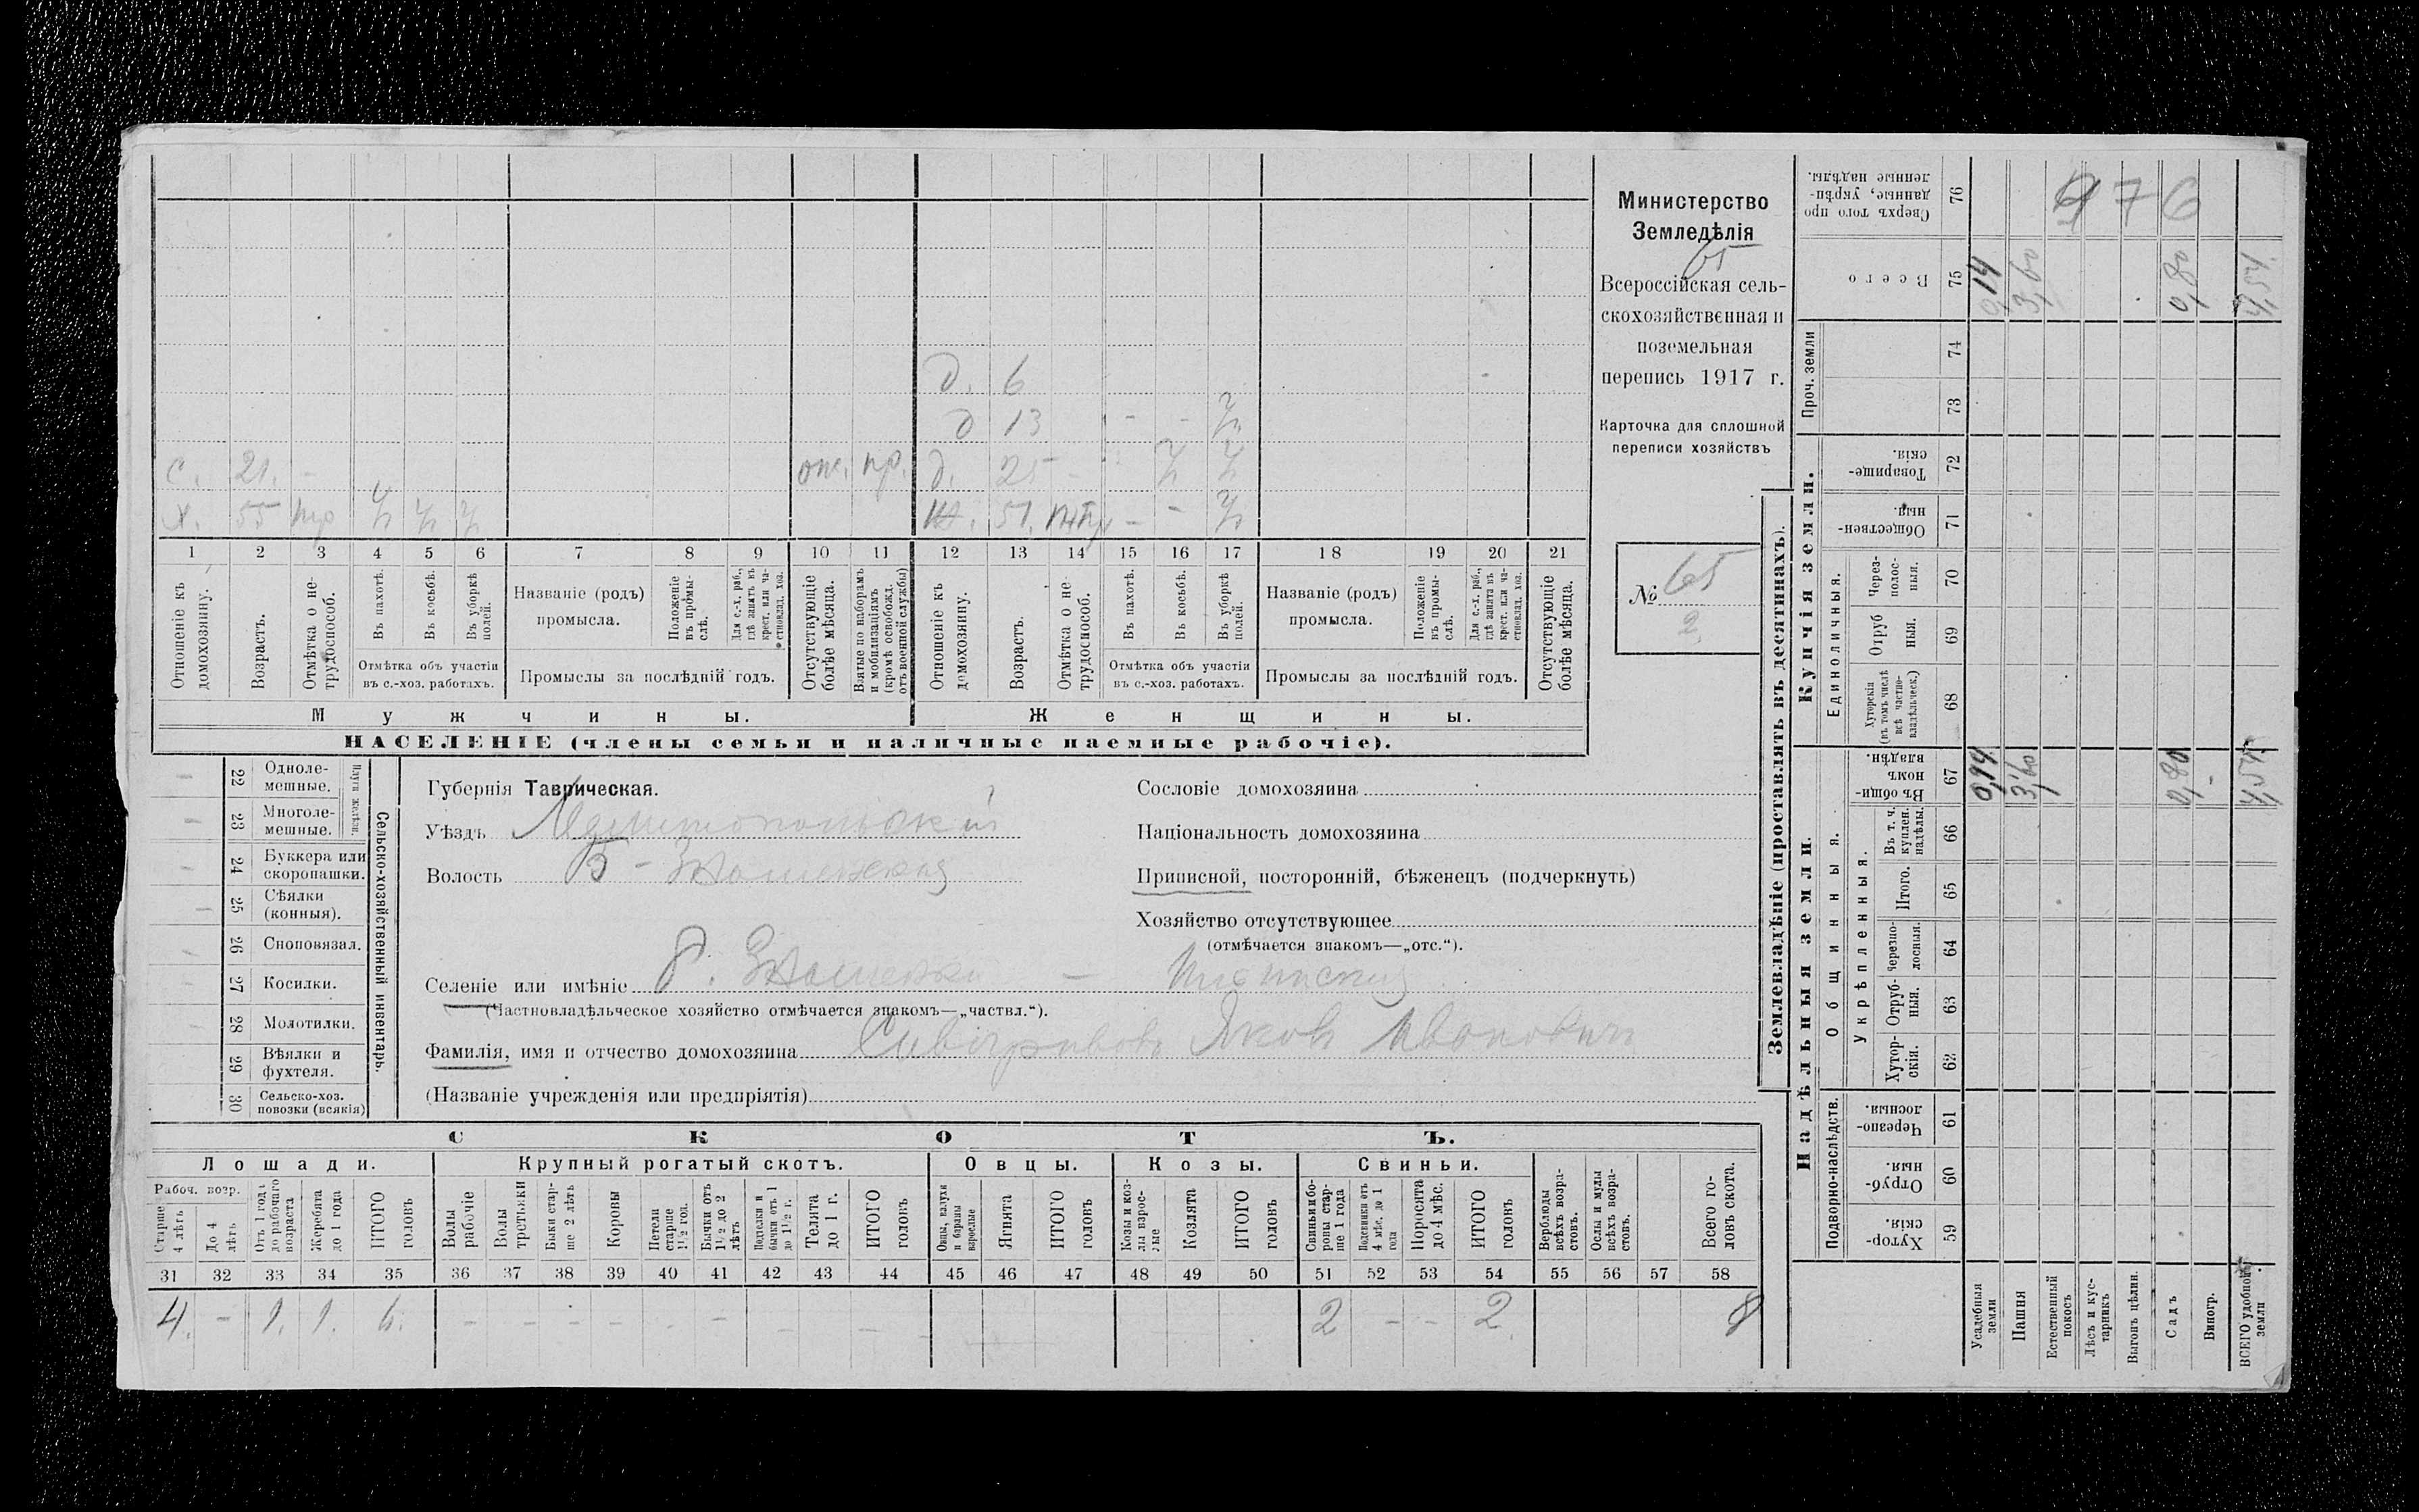 976
Министерство
Земледѣлія
65
Всероссійская сель-
скохозяйственная и
поземельная
перепись 1917 г.
Карточка для сплошной
переписи хозяйствъ
№ 65
2
д. 6
д 13 - - ½
с. 21. - отс. пр. д. 25 - ½ ½
х. 55 ½ ½ ½ ж. 51. - - ½
1 2 3 4 5 6 7 8 9 10 11 12 13 14 15 16 17 18 19 20 21
Отношеніе къ домохозяину.
Возрастъ.
Отмѣтка о не-трудоспособ.
Въ пахотѣ.
Въ косьбѣ.
Въ уборкѣ полей.
Отмѣтка объ участіи
въ с.-хоз. работахъ.
Названіе (родъ)
промысла.
Положеніе въ промы-слѣ.
Для с.-х. раб., гдѣ занятъ въ крест. или ча-стновлад. хоз.
Промыслы за послѣдній годъ.
Отсутствующіе болѣе мѣсяца.
Взятые по наборамъ и мобилизаціямъ (кромѣ освобожд. отъ военной службы)
Отношеніе къ домохозяину.
Возрастъ.
Отмѣтка о не-трудоспособ.
Въ пахотѣ.
Въ косьбѣ.
Въ уборкѣ полей.
Отмѣтка объ участіи
въ с.-хоз. работахъ.
Названіе (родъ)
промысла.
Положеніе въ промы-слѣ.
Для с.-х. раб., гдѣ занята въ крест. или ча-стновлад. хоз.
Промыслы за послѣдній годъ.
Отсутствующіе болѣе мѣсяца.
Мужчины. Женщины.
НАСЕЛЕНІЕ (члены семьи и наличные наемные рабочіе).
22 Одноле-мешные.
23 Многоле-мешные.
Плуги желѣзн.
24 Буккера или скоропашки.
25 Сѣялки (конныя).
26 Сноповязал.
27 Косилки.
28 Молотилки.
29 Вѣялки и фухтеля.
30 Сельско-хоз. повозки (всякія)
Сельско-хозяйственный инвентарь.
Губернія Таврическая.
Уѣздъ Мелитопольскій
Волость Б-Знаменская
Селеніе или имѣніе
(Частновладѣльческое хозяйство отмѣчается знакомъ—„частвл.“).
Фамилія, имя и отчество домохозяина Яковъ Ивановичъ
(Названіе учрежденія или предпріятія)
Сословіе домохозяина
Національность домохозяина
Приписной, посторонній, бѣженецъ (подчеркнуть)
Хозяйство отсутствующее
(отмѣчается знакомъ—„отс.“).
СКОТЪ.
Лошади. Крупный рогатый скотъ. Овцы. Козы. Свиньи.
Рабоч. возр.
Старше 4 лѣтъ
До 4 лѣтъ.
Отъ 1 года до рабочаго возраста
Жеребята до 1 года
ИТОГО головъ
Волы рабочіе
Волы гостьяки
Быки стар-ше 2 лѣтъ
Коровы
Нетели старше 1½ год.
Бычки отъ 1½ до 2 лѣтъ
Подтелки и бычки отъ 1 до 1½ г.
Телята до 1 г.
ИТОГО головъ
Овцы, валухи и бараны взрослые
Ягнята
ИТОГО головъ
Козы и коз-лы взрос-лые
Козлята
ИТОГО головъ
Свиньи и бо-ровы стар-ше 1 года
Подсвинки отъ 4 мѣс. до 1 года
Поросята до 4 мѣс.
ИТОГО головъ
Верблюды всѣхъ возра-стовъ.
Ослы и мулы всѣхъ возра-стовъ.
Всего го-ловъ скота.
31 32 33 34 35 36 37 38 39 40 41 42 43 44 45 46 47 48 49 50 51 52 53 54 55 56 57 58
4. - 1. 1. 6. - - - - - - - - - 2 - - 2. 8
Землевладѣніе (проставлять въ десятинахъ).
Надѣльныя земли. Купчія земли. Проч. земли
Подворно-наслѣдств. Общинныя.
Укрѣпленныя. Единоличныя.
Хутор-скія. 59
Отруб-ныя. 60
Черезпо-лосныя. 61
Хутор-скія. 62
Отруб-ныя. 63
Черезпо-лосныя. 64
Итого. 65
Въ т. ч. куплен. надѣлы. 66
Въ общи-номъ владѣн. 67
Хуторскія (въ томъ числѣ всѣ частно-владѣльческ.) 68
Отруб ныя. 69
Через-полос-ныя. 70
Обществен-ныя. 71
Товарище-скія. 72
73
74
Всего 75
Сверхъ того про данные, укрѣп-ленные надѣлы. 76
Усадебныя земли 0,14 0,14
Пашня 3,60 3,60
Естественный покосъ
Лѣсъ и кус-тарникъ
Выгонъ цѣлин.
Садъ 0,80 0,80
Виногр. -
ВСЕГО удобной земли 4,54 4,54